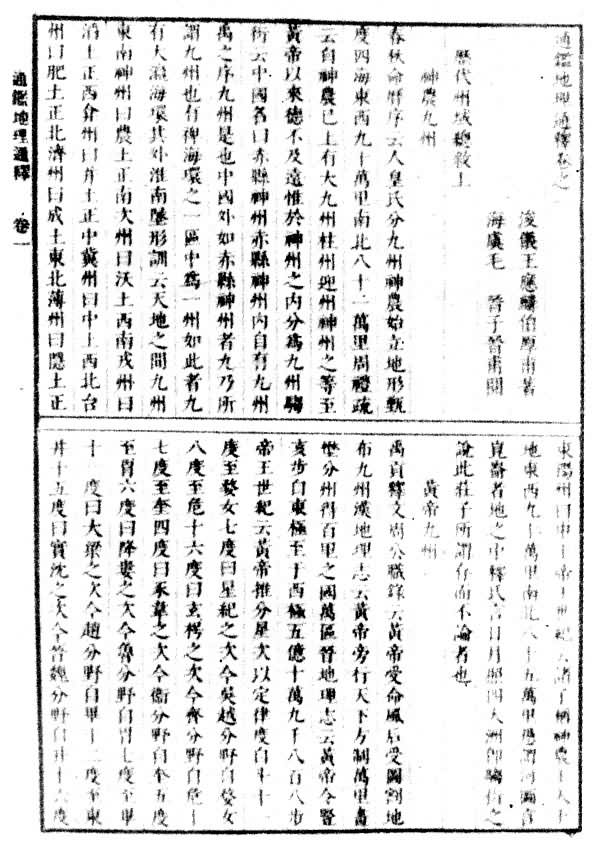 通鑑地理通釋卷之一
浚儀王應麟伯厚甫著
海虞毛 晉子晉甫閱
歷代州域總敘上
神農九州
春秋命曆序云人皇氏分九州神農始立地形甄
度四海東西九十萬里南北八十二萬里周禮疏
云自神農已上有大九州柱州迎州神州之等至
黃帝以來德不及遠惟於神州之內分爲九州騶
衍云中國名曰赤縣神州赤縣神州內自有九州
禹之序九州是也中國外如赤縣神州者九乃所
謂九州也有裨海環之一區中爲一州如此者九
有大瀛海環其外淮南墬形訓云天地之間九州
東南神州曰農土正南次州曰沃土西南戎州曰
滔土正西弇州曰并土正中冀州曰中土西北台
州曰肥土正北濟州曰成土東北薄州曰隱土正
東陽州曰申土帝王世紀云諸子稱神農之大九
地東西九十萬里南北八十五萬里
崑崙者地之中釋氏言日月照四大洲卽騶衍之
說此莊子所謂存而不論者也
黃帝九州
禹貢釋文周公職錄云黃帝受命風后受圖割地
布九州漢地理志云黃帝旁行天下方制萬里畫
壄分州得百里之國萬區晉地理志云黃帝令豎
亥步自東極至于西極五億十萬九千八百八步
帝王世紀云黃帝推分星次以定律度自斗十一
度至婺女七度曰星紀之次今吳越分野自婺女
八度至危十六度曰玄枵之次今齊分野自危十
七度至奎四度曰豕韋之次今衛分野自奎五度
至胃六度曰降婁之次今魯分野自胃七度至畢
十一度曰大梁之次今趙分野自畢十二度至東
井十五度曰實沈之次今晉魏分野自井十六度
通鑑地理通釋 卷一